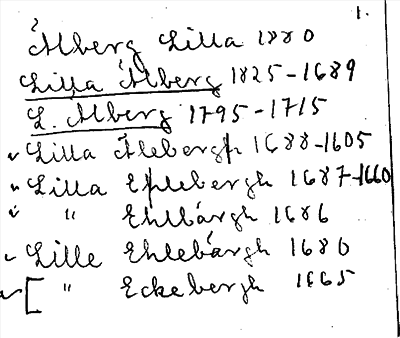 1.
Ålberg Lilla 1880
Lilla Ålberg 1825-1689
L. Alberg 1795-1715
Lilla Ålebergh 1688-1605
Lilla Ehlebergh 1687-1660
" Ehlbärgh 1686
Lille Ehlebärgh 1680
[ " Eckebergh 1665